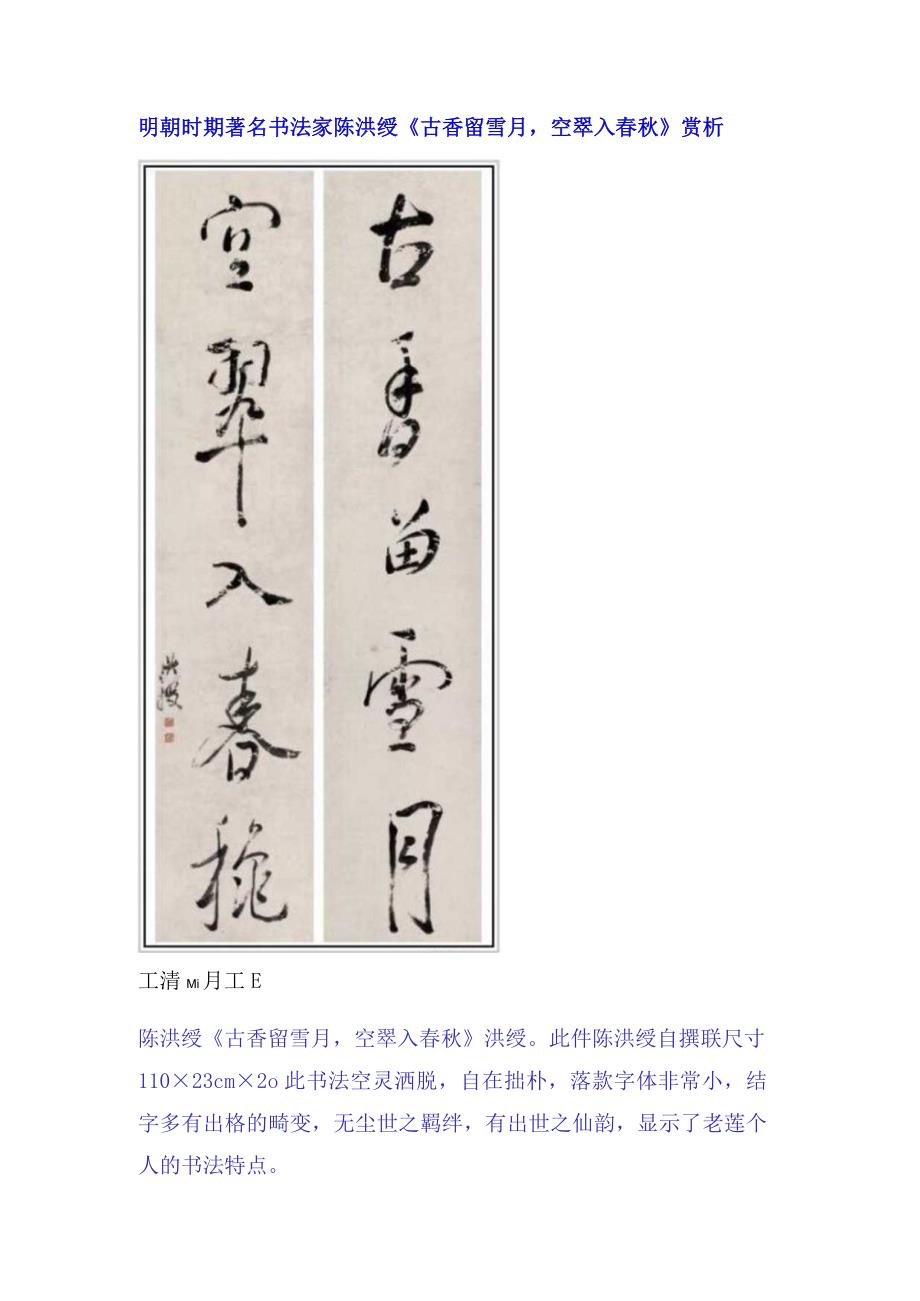 明朝时期著名书法家陈洪绶《古香留雪月，空翠入春秋》赏析
古香留雪月
空翠入春秋
洪绶
工清 Mi 月工 E
陈洪绶《古香留雪月，空翠入春秋》洪绶。此件陈洪绶自撰联尺寸
110×23cm×2o 此书法空灵洒脱，自在拙朴，落款字体非常小，结
字多有出格的畸变，无尘世之羁绊，有出世之仙韵，显示了老莲个
人的书法特点。